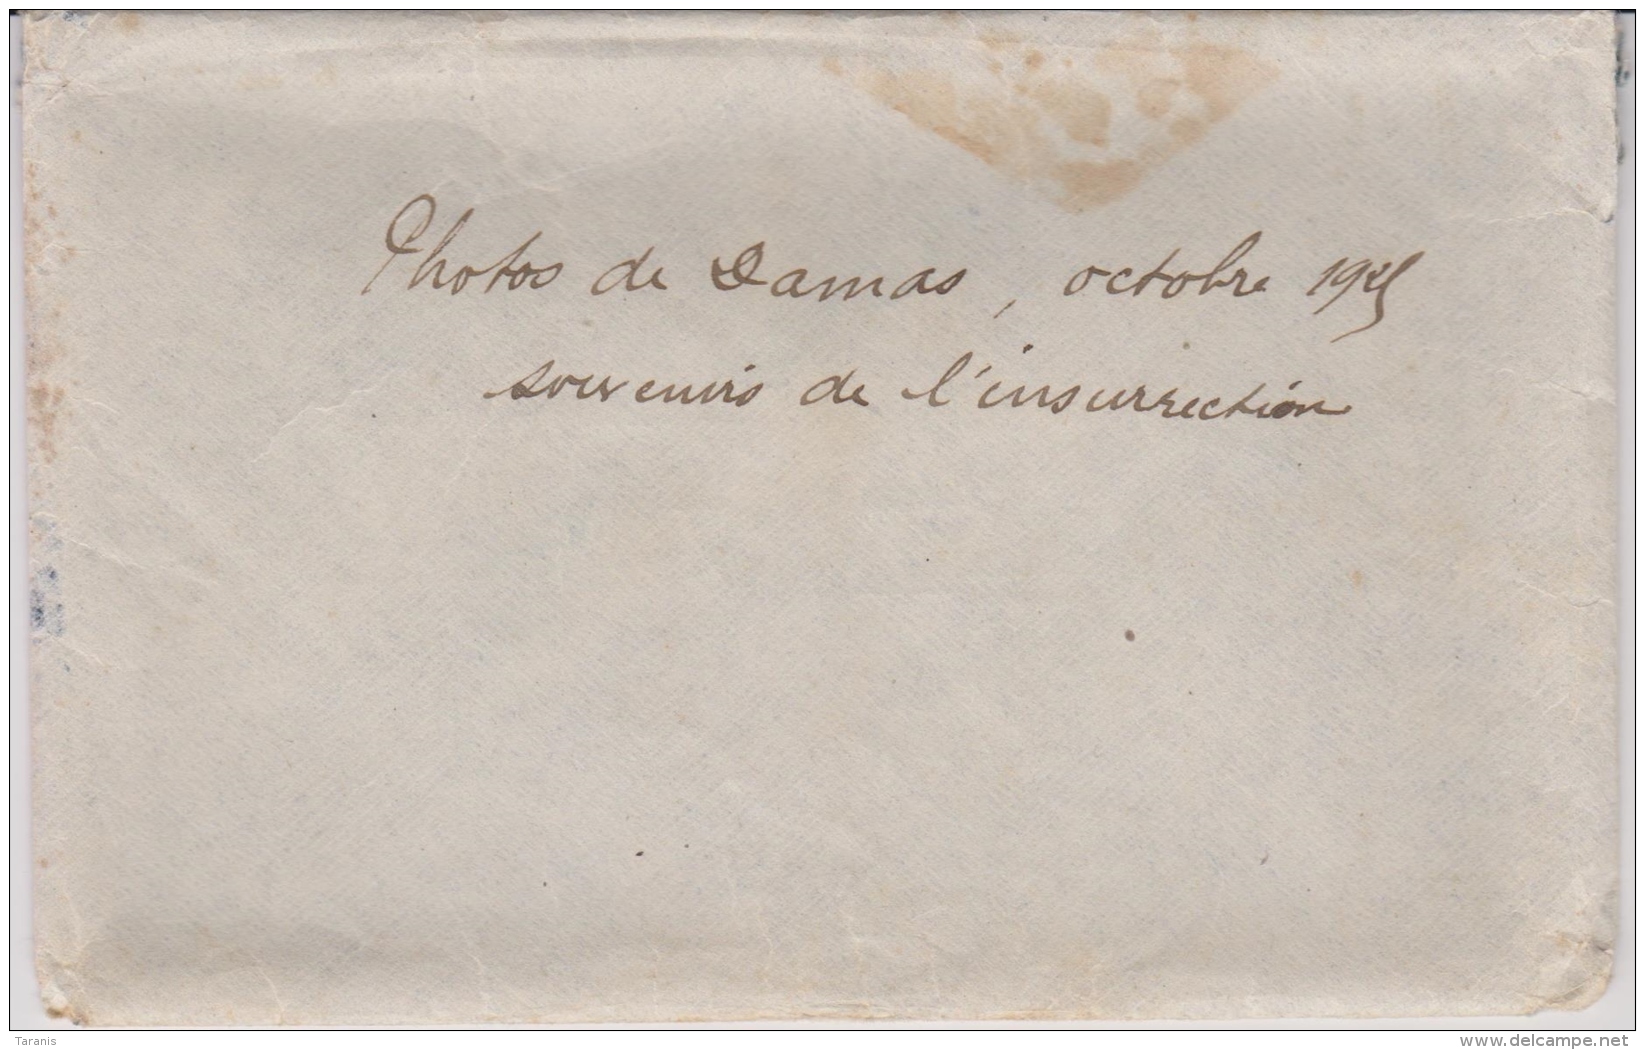 Photos de Damas, octobre 1925
souvenirs de l'insurrection
Taranis
www.delcampe.net